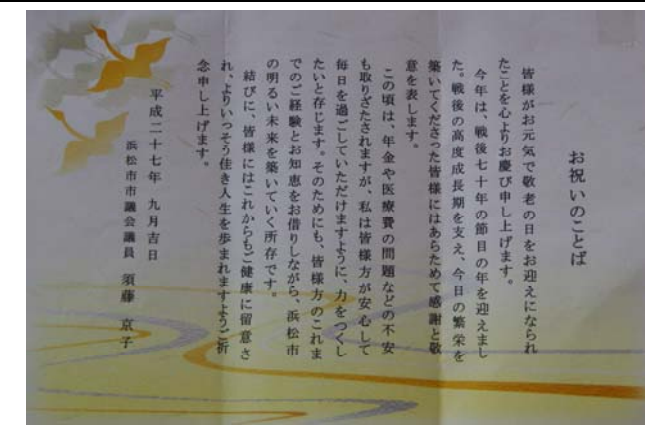 お祝いのことば
皆様がお元気で敬老の日をお迎えになられ
たことを心よりお慶び申し上げます。
今年は、戦後七十年の節目の年を迎えまし
た。戦後の高度成長期を支え、今日の繁栄を
築いてくださった皆様にはあらためて感謝と敬
意を表します。
この頃は、年金や医療費の問題などの不安
も取りざたされますが、私は皆様方が安心して
毎日を過ごしていただけますように、力をつくし
たいと存じます。そのためにも、皆様方のこれま
でのご経験とお知恵をお借りしながら、浜松市
の明るい未来を築いていく所存です。
結びに、皆様にはこれからもご健康に留意さ
れ、よりいっそう佳き人生を歩まれますようご祈
念申し上げます。
平成二十七年 九月吉日
浜松市市議会議員 須藤 京子